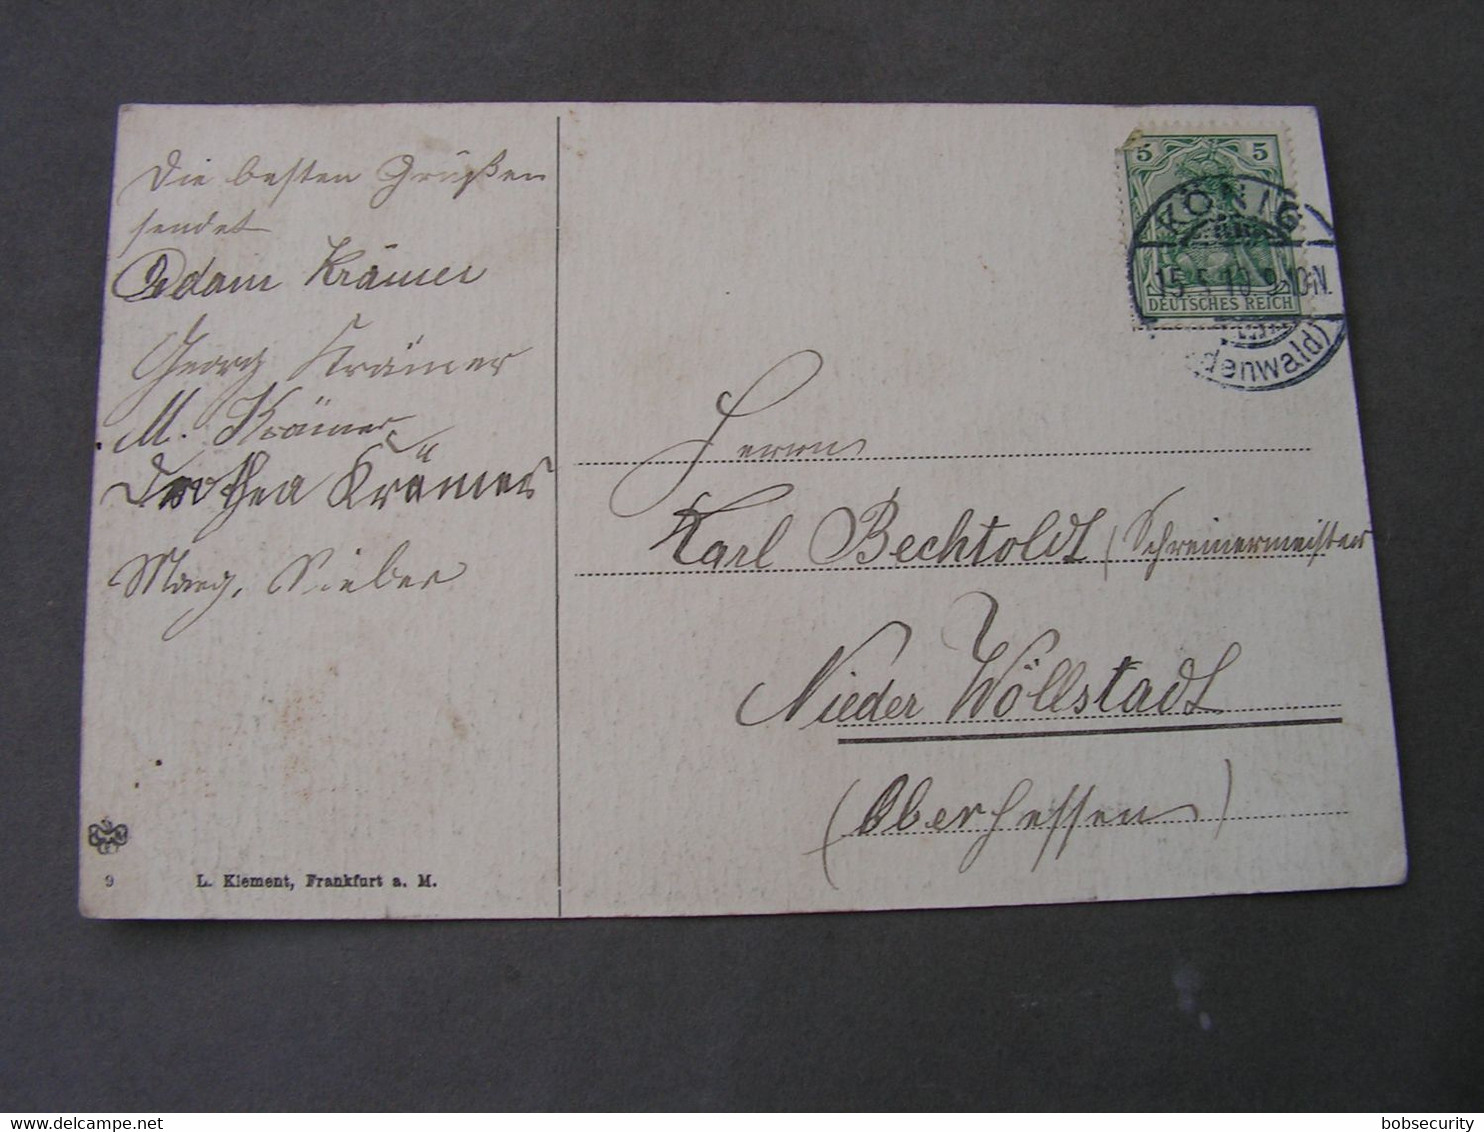 Die besten Grüßen
sendet
Adam Krämer
Georg Krämer
M. Krämer
Dorothea Krämer
Marg. Sieber
9
L. Klement, Frankfurt a. M.
5 5
DEUTSCHES REICH
KÖNIG
15.5.10.9-10N.
(Odenwald)
Herrn
Karl Bechtoldt (Schreinermeister
Nieder Wöllstadt
(Oberhessen)
delcampe.net
bobsecurity